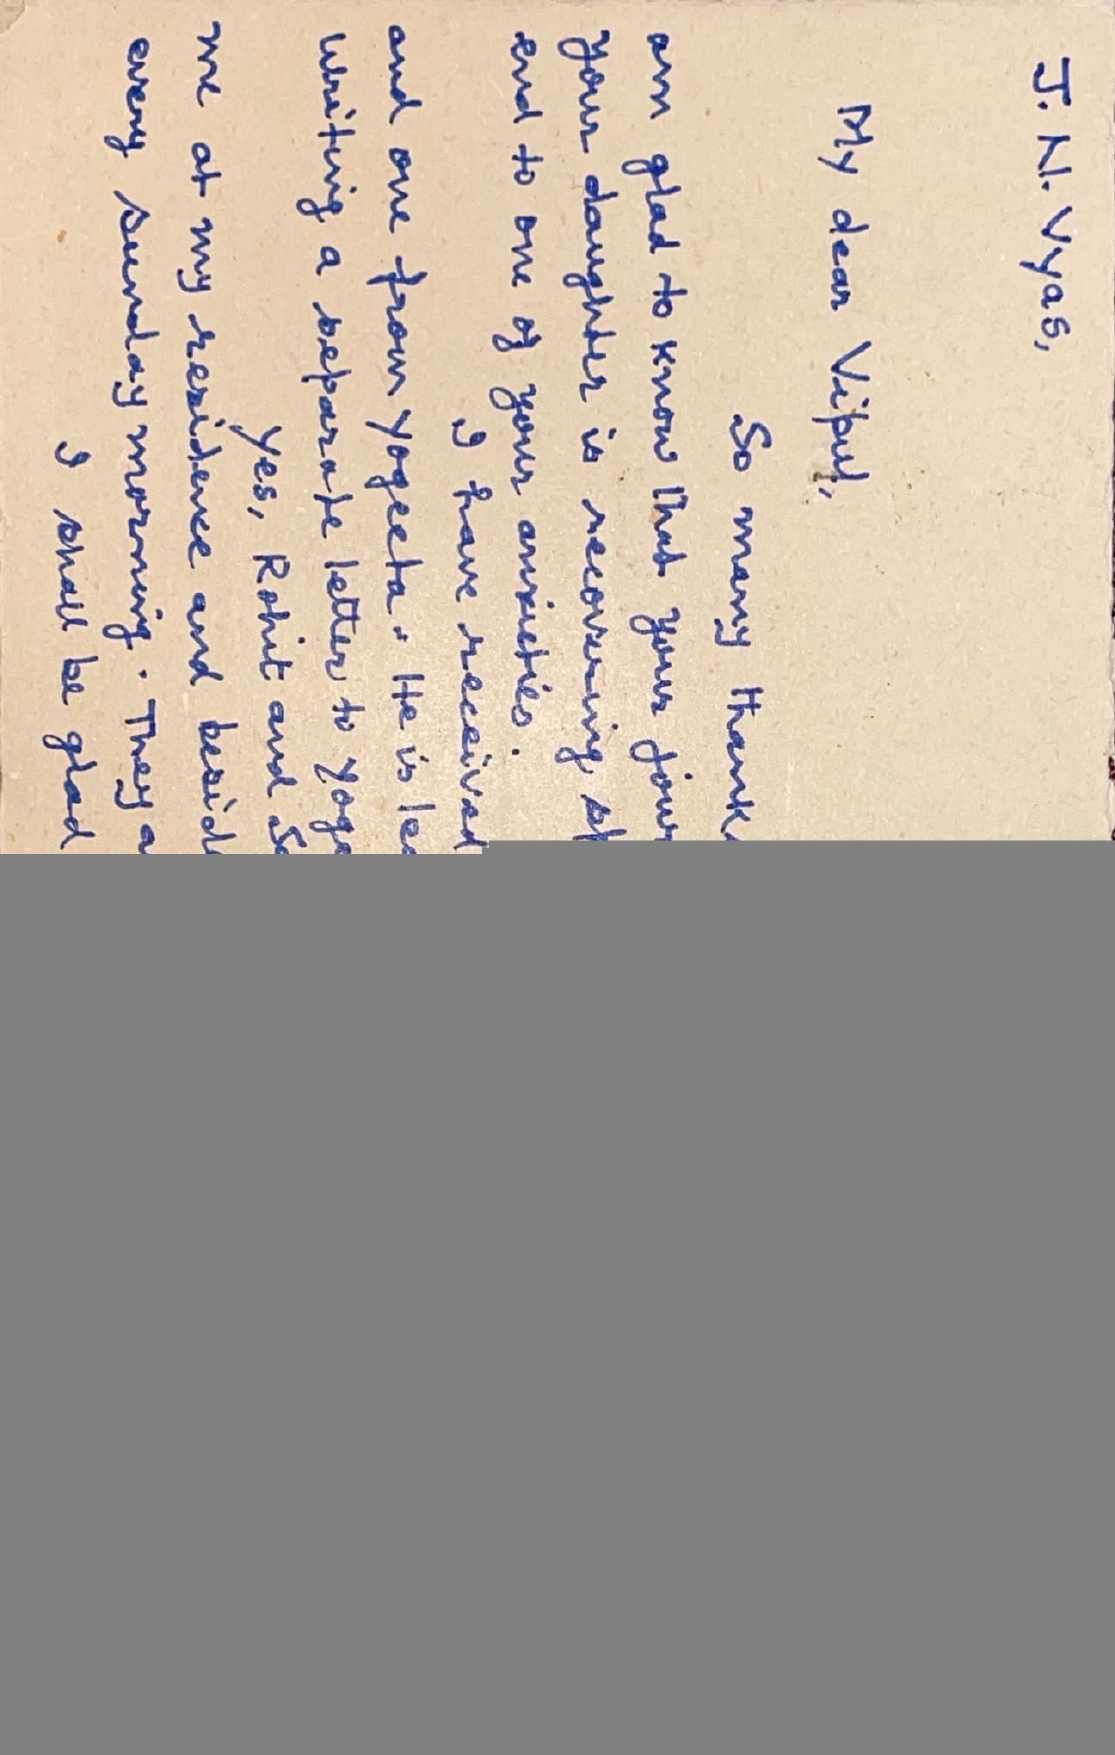 J. N. Vyas,
My dear Vipul,
So many thank
am glad to know that your
your daughter is recovering
end to one of your anxieties.
I have received
and one from Yogeeta. He is
writing a separate letter to
Yes, Rohit and
me at my residence and
every sunday morning. They
I shall be glad